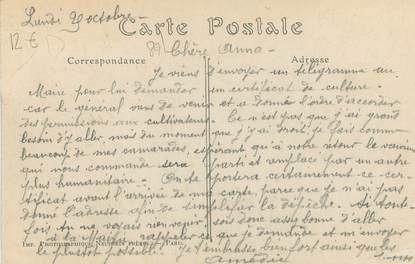 Lundi 2 octobre
12 €
Carte Postale
Chère Anna
Correspondance
Adresse
Je viens d'envoyer un télégramme au
Maire pour lui demander un certificat de culture.
car le général vient de venir et a donné l'ordre d'accorder
des permissions aux cultivateurs. Ce n'est pas que j'ai grand
besoin d'y aller, mais du moment que j'y ai droit, je fais comme
beaucoup de mes camarades, espérant qu'à notre retour le vaurien
qui nous commande sera parti et remplacé par un autre
plus humanitaire. On te portera certainement ce cer-
tificat avant l'arrivée de ma carte, parce que je n'ai pas
donné l'adresse afin de simplifier la dépêche. Si tout-
fois tu ne voyais rien venir sois donc assez bonne d'aller
à la Mairie rappeler ce que je demande et m'envoyer
le plustot possible. Je t'embrasse bien fort ainsi que les
Imp. Photographique Neurdein Frères - Paris
Amédée